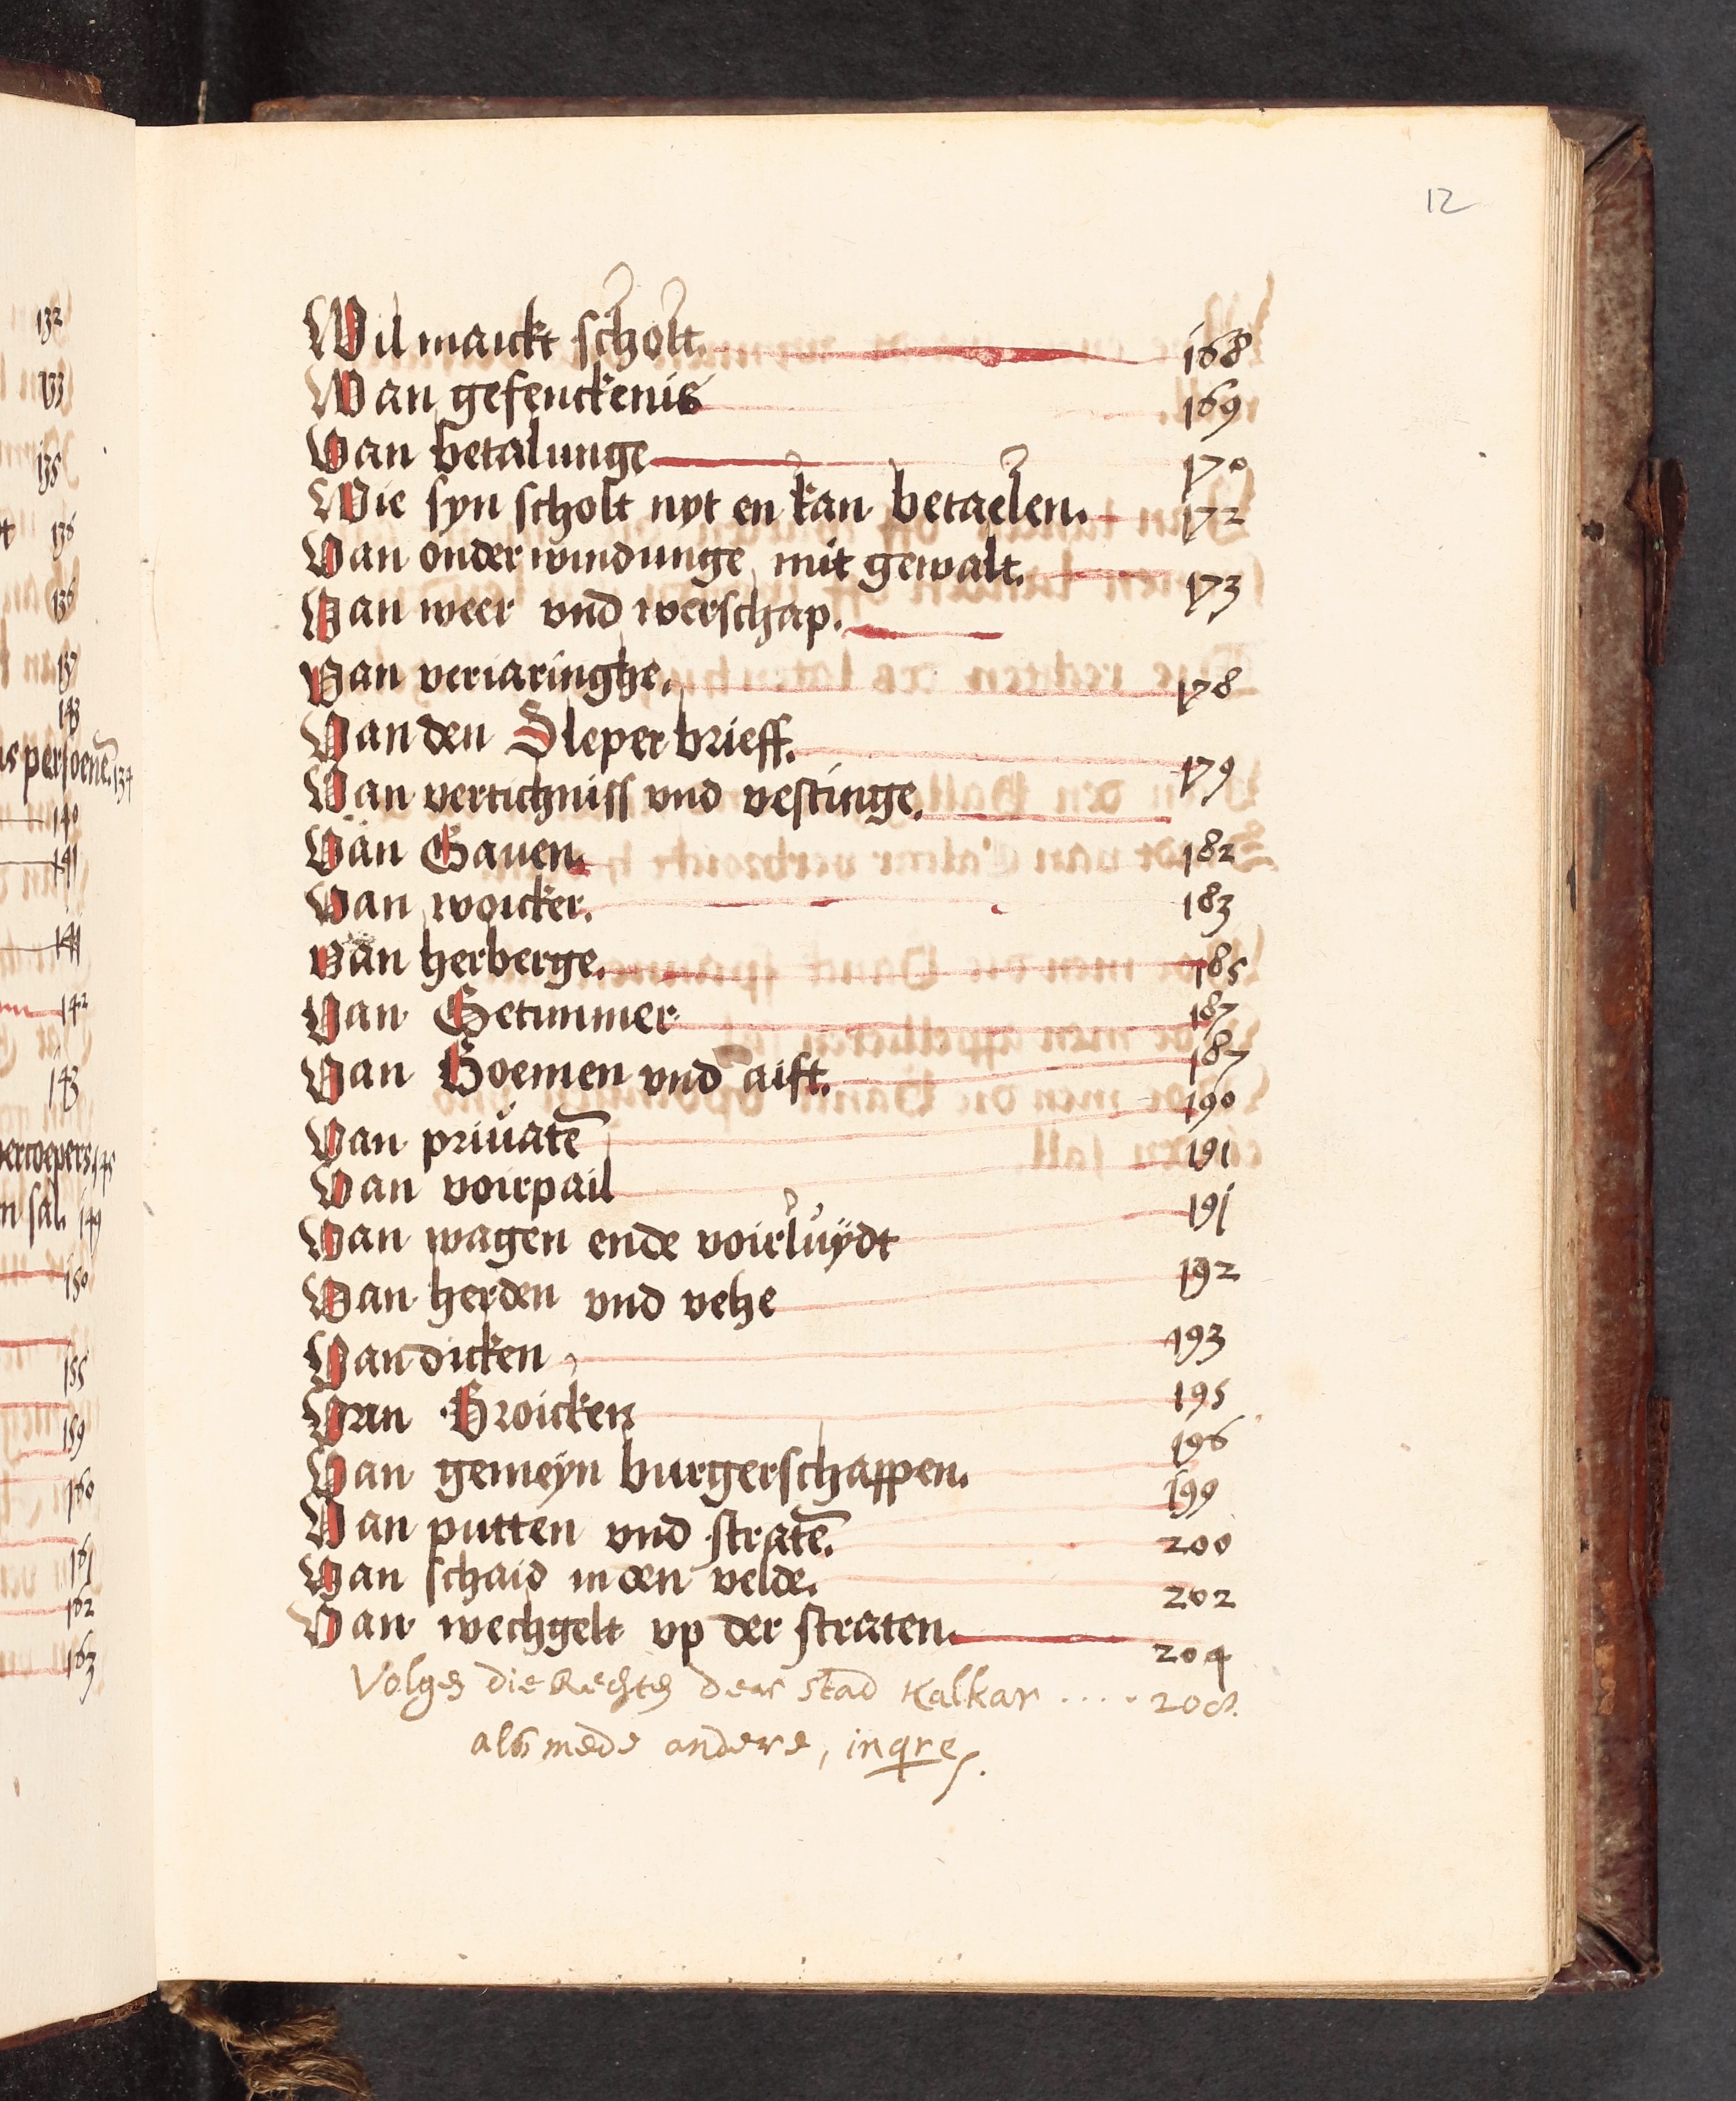 12
Wil marckt scholt. 168
Van gefenckenis 169
Van betalunge 170
Wie syn scholt nyt en kan betaelen. 172
Van onderwindunge mit gewalt. 173
Van weer vnd werschap.
Van veriaringhe. 178
Van den Sleper brieff. 179
Van vertichniss vnd vestinge.
Van Gauen. 182
Van woicker. 183
Van herberge. 185
Van Getimmer 187
Van Boemen vnd aift. 187
Van priuatē 190
Van voirpail 191
Van wagen ende voirluÿdt 191
Van herden vnd vehe 192
Van dicken 193
Van Broicken 195
Van gemeyn burgerschappen. 196
Van putten vnd stratē. 199
Van schaid in den velde. 200
Van wechgelt vp der straten. 202
204
Volgen die Rechten der Stad Kalkar .... 208.
als mede andere,
132
133
135
136
136
137
143
persoenē. 134
140
141
141
142
143
145
n sal. 149
150
155
159
160
161
162
163